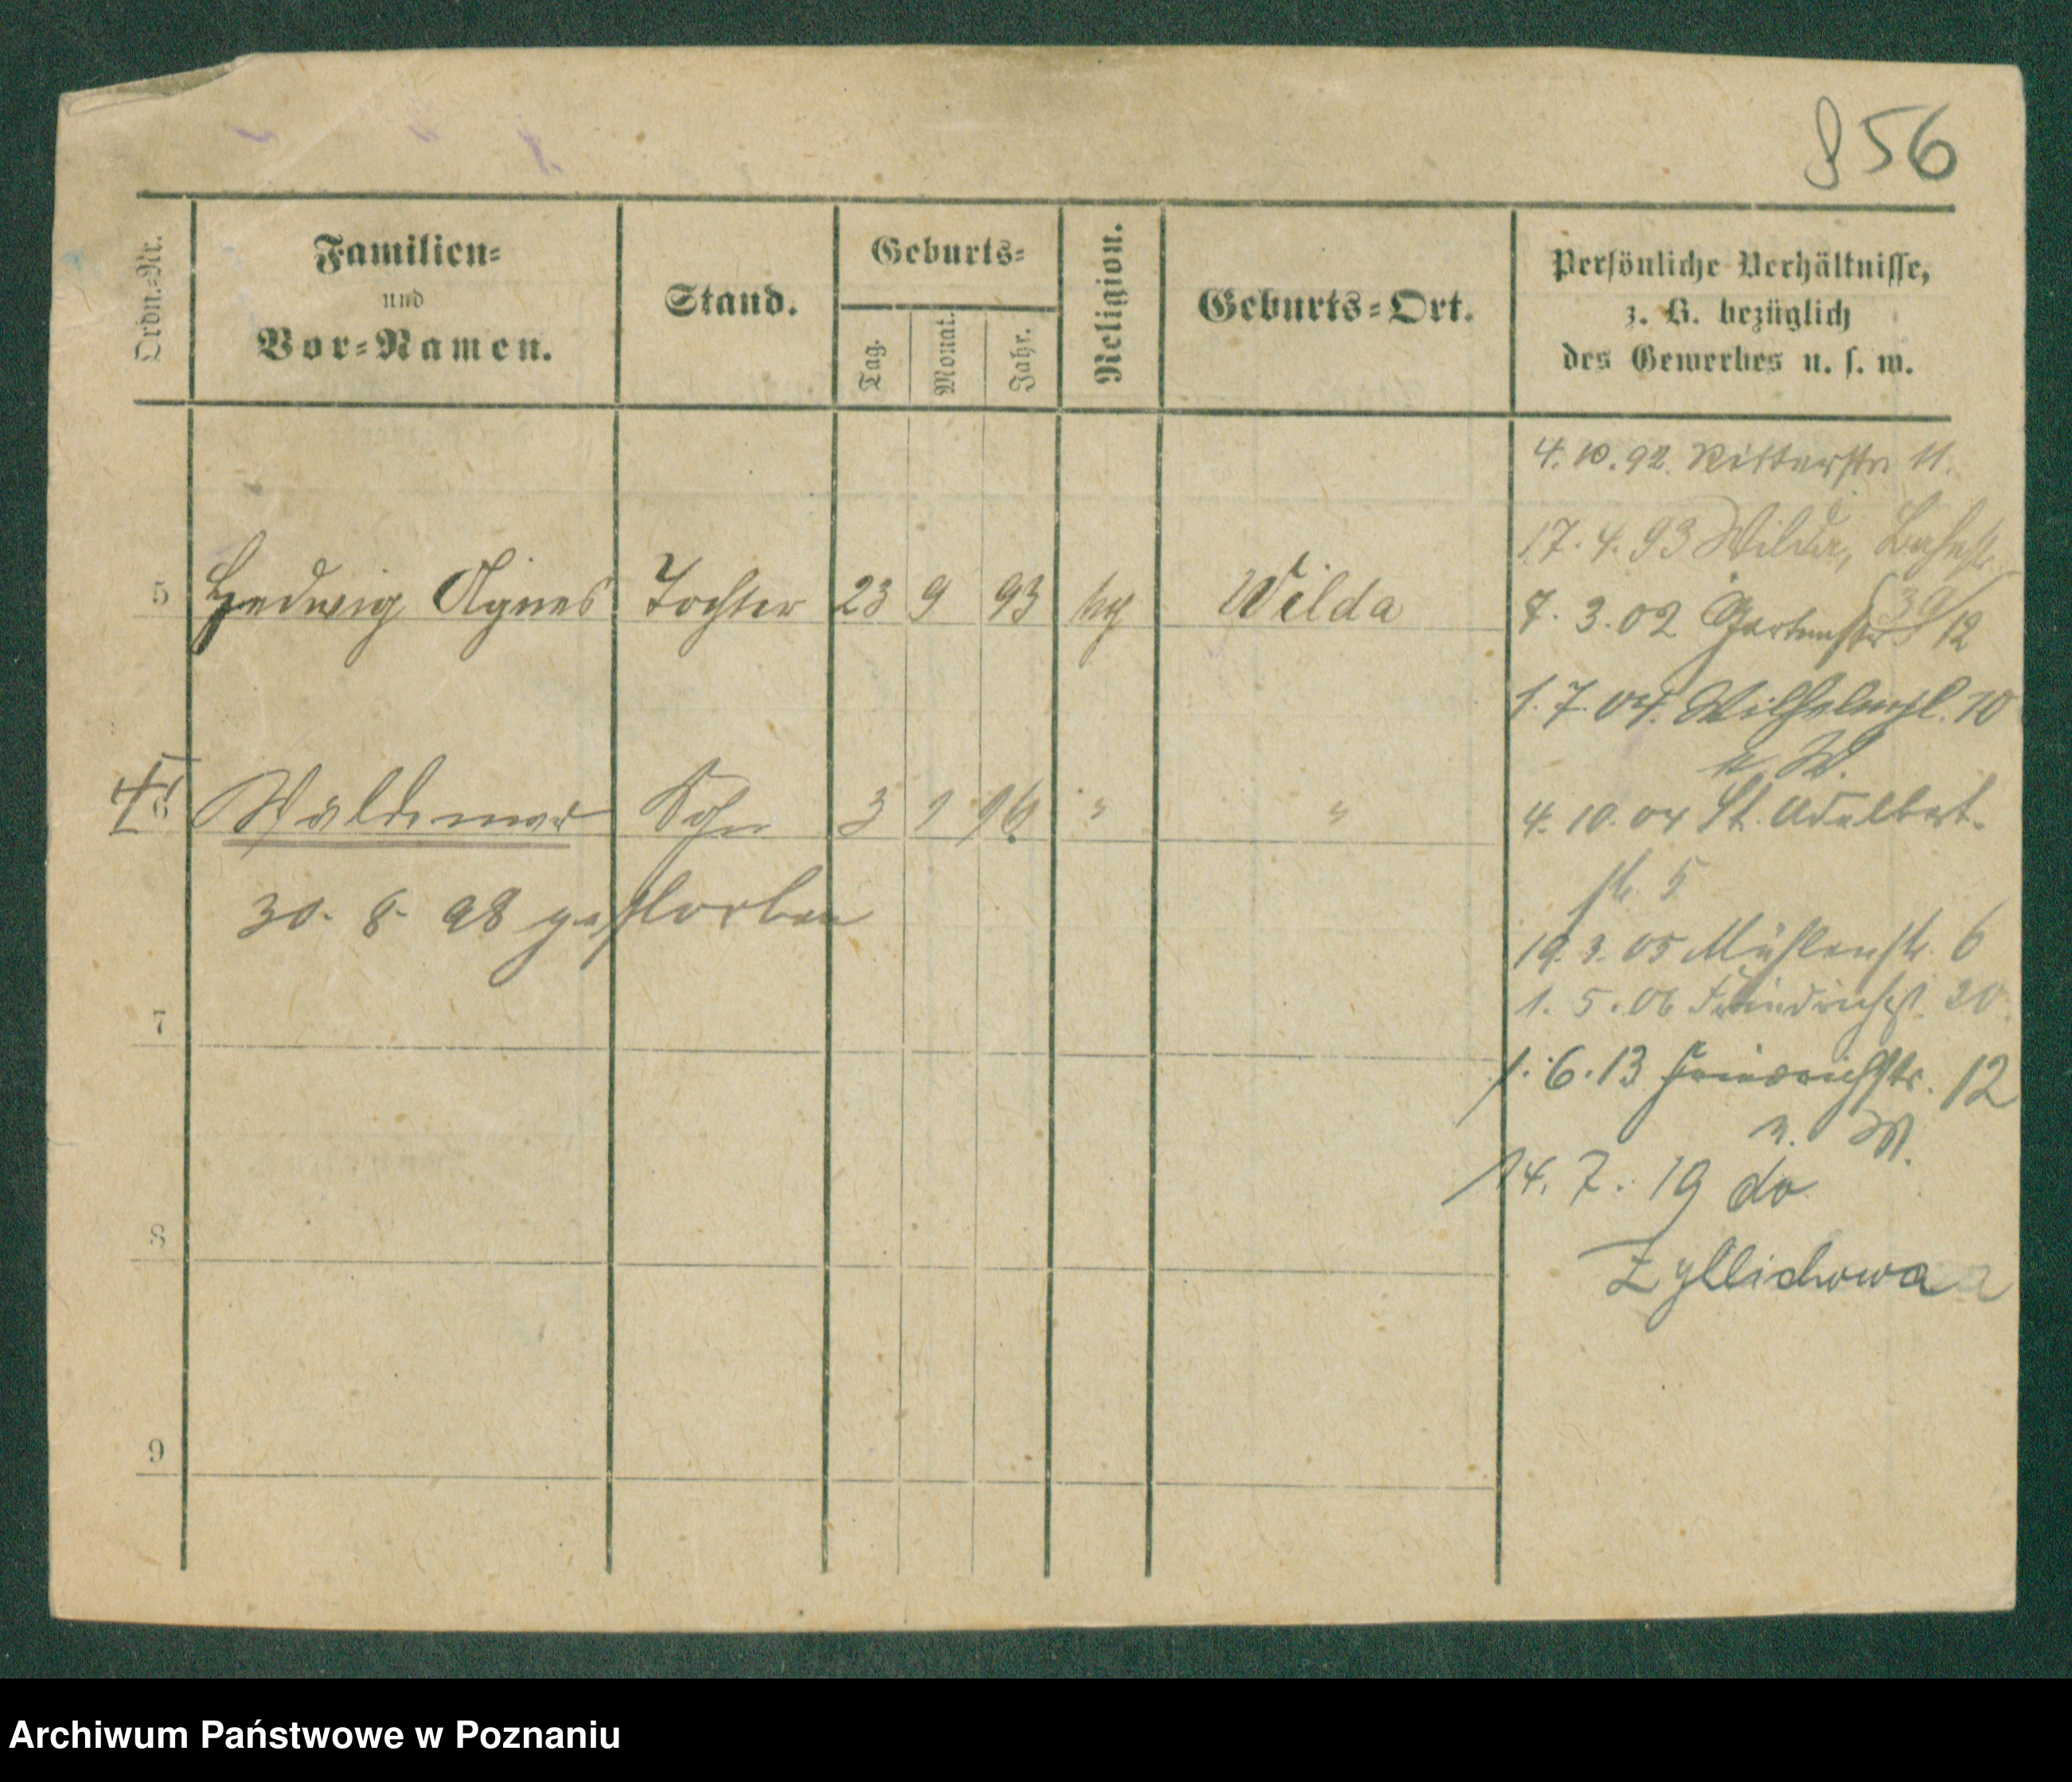 856
Ordn.-Nr.
Familien-
und
Vor-Namen.
Stand.
Geburts-
Tag.
Monat.
Jahr.
Religion.
Geburts-Ort.
Persönliche Verhältnisse,
z. B. bezüglich
des Gewerbes u. s. w.
4. 10. 92. Ritterstr 11.
17. 4. 93 Wilda,
5 Hedwig Agnes Tochter 23 9 93 Wilda
7. 3. 02 Gartenstr 12
1. 7. 04. Wilhelmspl. 10
6 Waldemar Sohn 3 1 96 " "
4. 10. 04 St. Adalbert-
str. 5
30. 8. 98 gestorben
19. 3. 05 Mühlenstr. 6
1. 5. 06 Friedrichst. 20
7
1. 6. 13 Friedrichstr. 12
n. W.
14. 7. 19 do
8
Zyllichowa
9
Archiwum Państwowe w Poznaniu